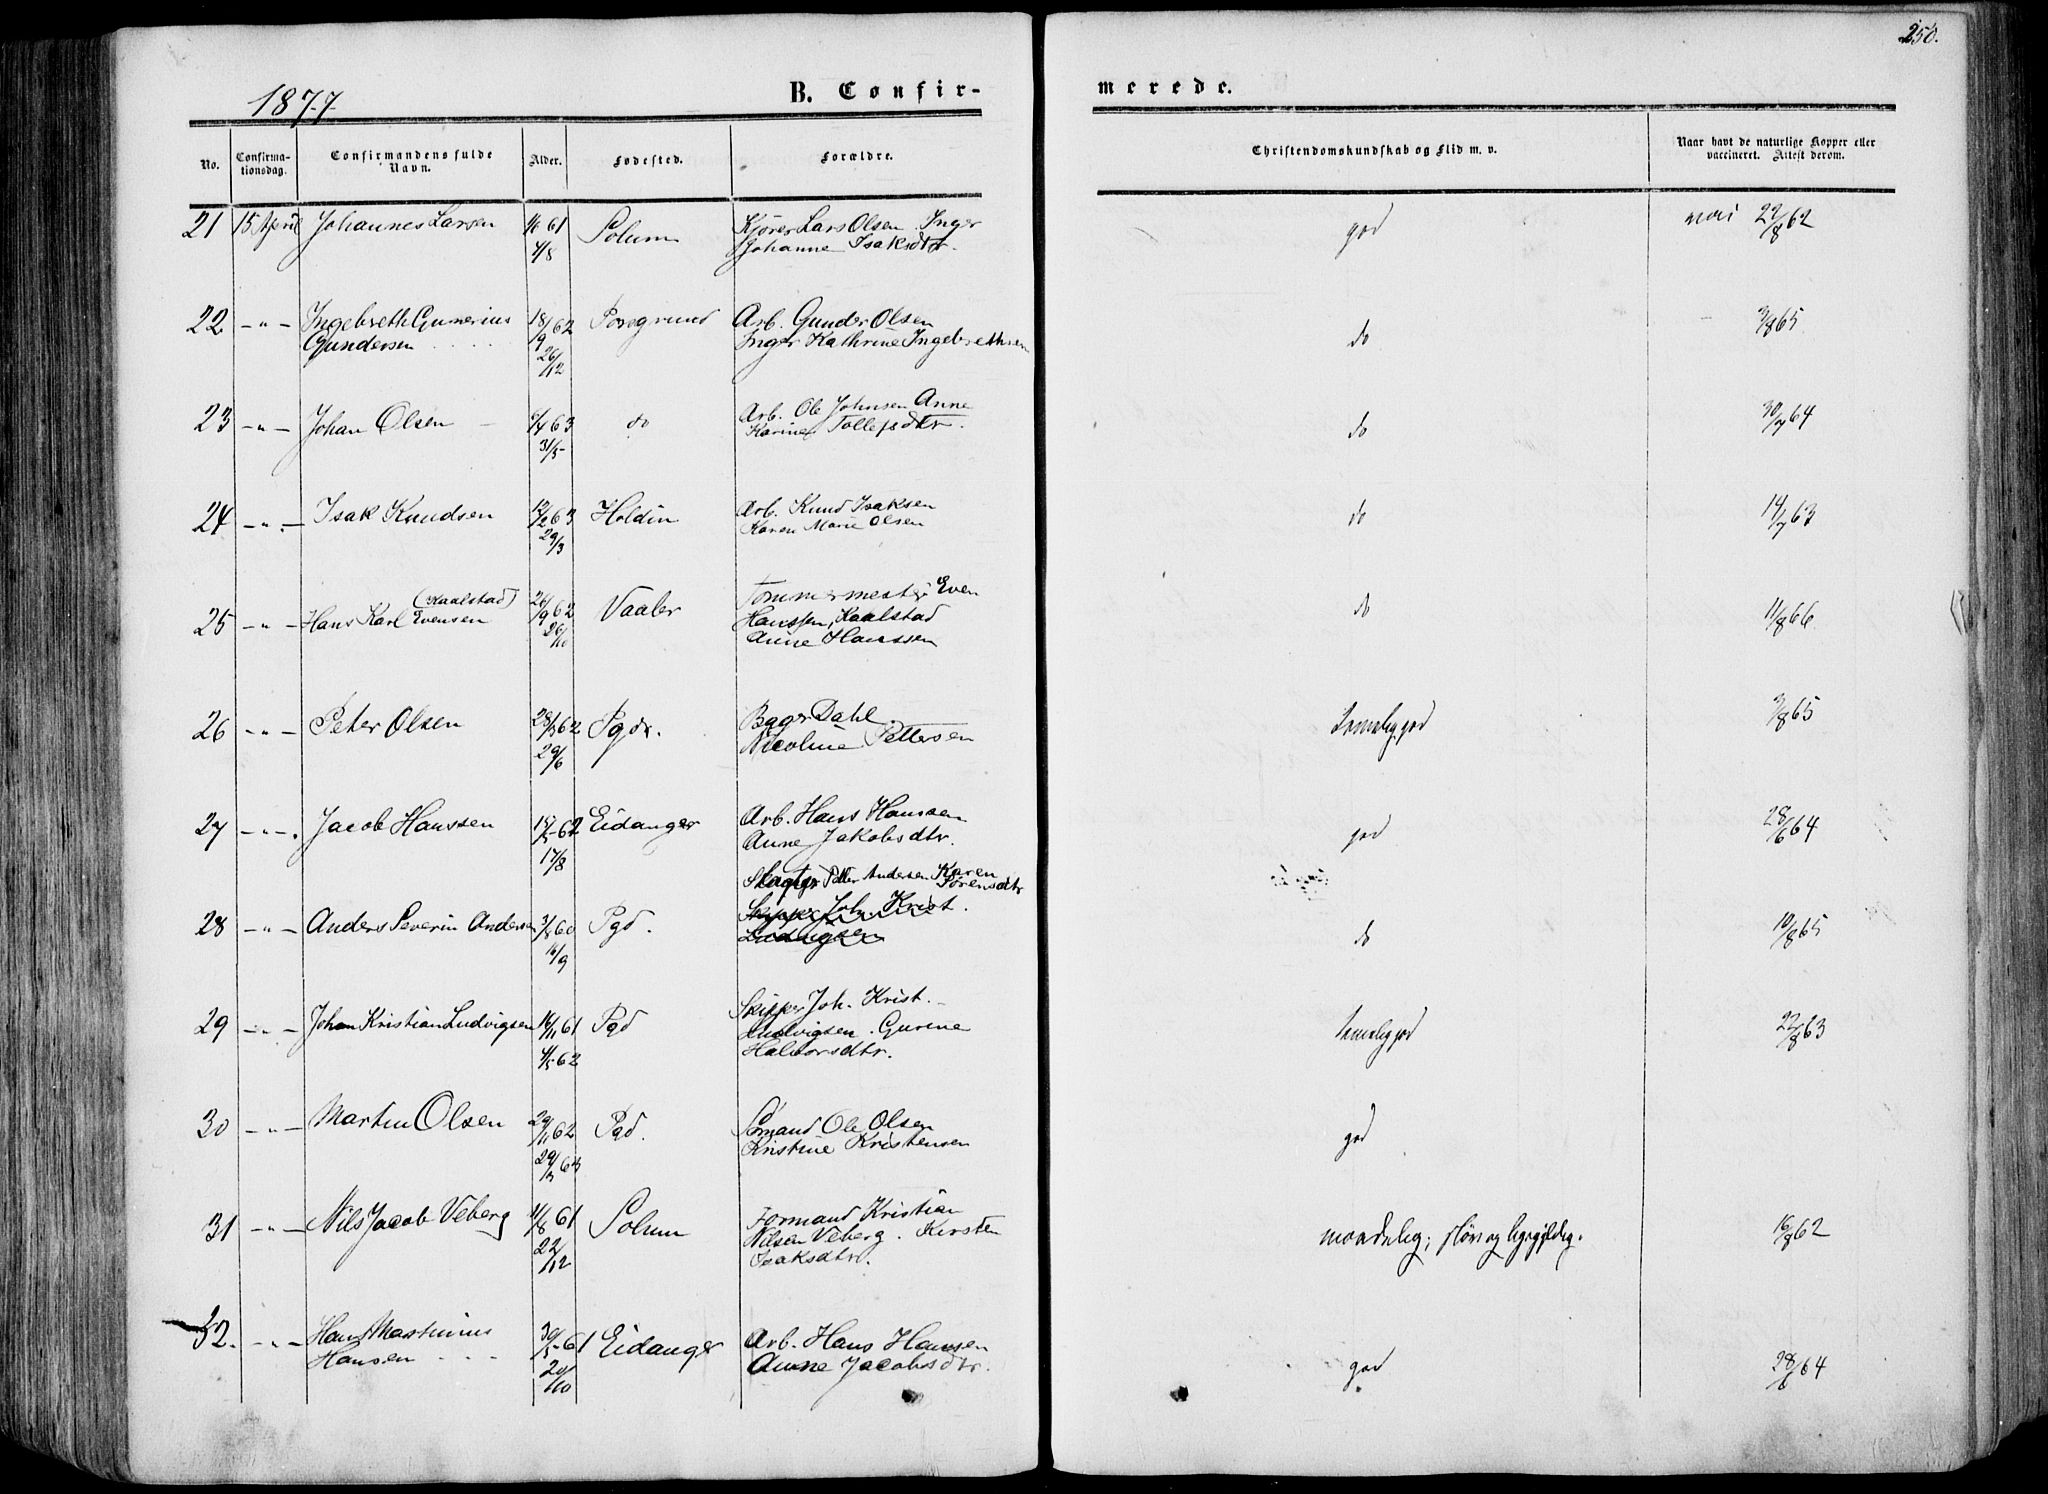 250.
1877.
B. Confir-
merede.
No.
Confirma-
tionsdag.
Confirmandens fulde
Navn.
Alder.
Fødested.
Forældre.
Christendomskundskab og Flid m. v.
Naar havt de naturlige Kopper eller
vaccineret. Attest derom.
21 15 April Johannes Larsen 61 Solum Kjører Lars Olsen. Inger god 22/8 62
4/8 Johanne Isaksdtr.
22 -"- Ingebreth Gumerius 18/9 62 Porsgrund Arb. Gunder Olsen do 3/8 65
Gundersen 26/12 Inger Kathrine Ingebrethsen
23 -"- Johan Olsen 63 do Arb. Ole Johnsen Anne do 30/7 64
31/5 Karine Tollefsdtr.
24 -"- Isak Knudsen 12/2 63 Holdin Arb. Knud Isaksen do 14/7 63
29/3 Karen Marie Olsen
25 -"- Hans Karl Evensen (Kaalstad) 26/9 62 Vaaler Tømmermester Even do 11/8 66
26/10 Hanssen, Kaalstad
Anne Hanssen
26 -"- Peter Olsen 62 Pgd. Bager Dahl temelig god 3/8 65
29/6 Nicoline Pettersen
27 -"- Jacob Hanssen 62 Eidanger Arb. Hans Hanssen god 28/6 64
17/8 Anne Jakobsdtr.
Slagter Petter Andersen Karen
Sørensdtr
28 -"- Anders Severin Andersen 60 Pgd. Skipper Joh. Krist. do 10/8 65
16/9 Ludvigsen
29 -"- Johan Kristian Ludvigsen 16/11 61 Pgd Skipper Joh. Krist. temelig god 22/8 63
62 Ludvigsen. Gurine
Halvorsdtr.
30 -"- Martin Olsen 29/11 62 Pgd. Sømand Ole Olsen god
29/3 63 Kristine Kristensen
31 -"- Nils Jacob Veberg 61 Solum Formand Kristian maadelig; sløv og ligegyldig. 16/8 62
22/12 Nilsen Veberg. Kirsten
Isaksdtr.
32. -"- Hans Martinius 30/5 61 Eidanger Arb. Hans Hansen god 28/6 64
Hansen 20/10 Anne Jacobsdtr.